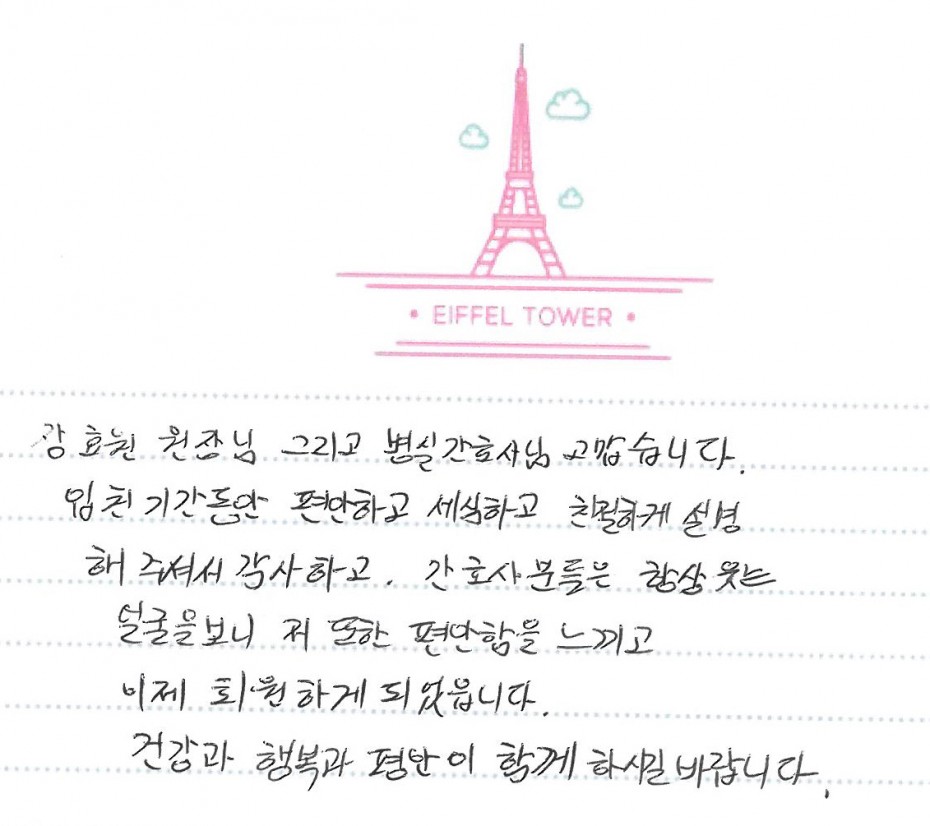 • EIFFEL TOWER •
강효원 원장님 그리고 병실간호사님 고맙습니다.
입원기간동안 편안하고 세심하고 친절하게 설명
해 주셔서 감사하고. 간호사분들은 항상 웃는
얼굴을보니 저 또한 편안함을 느끼고
이제 퇴원하게 되었읍니다.
건강과 행복과 평안이 함께 하시길바랍니다.